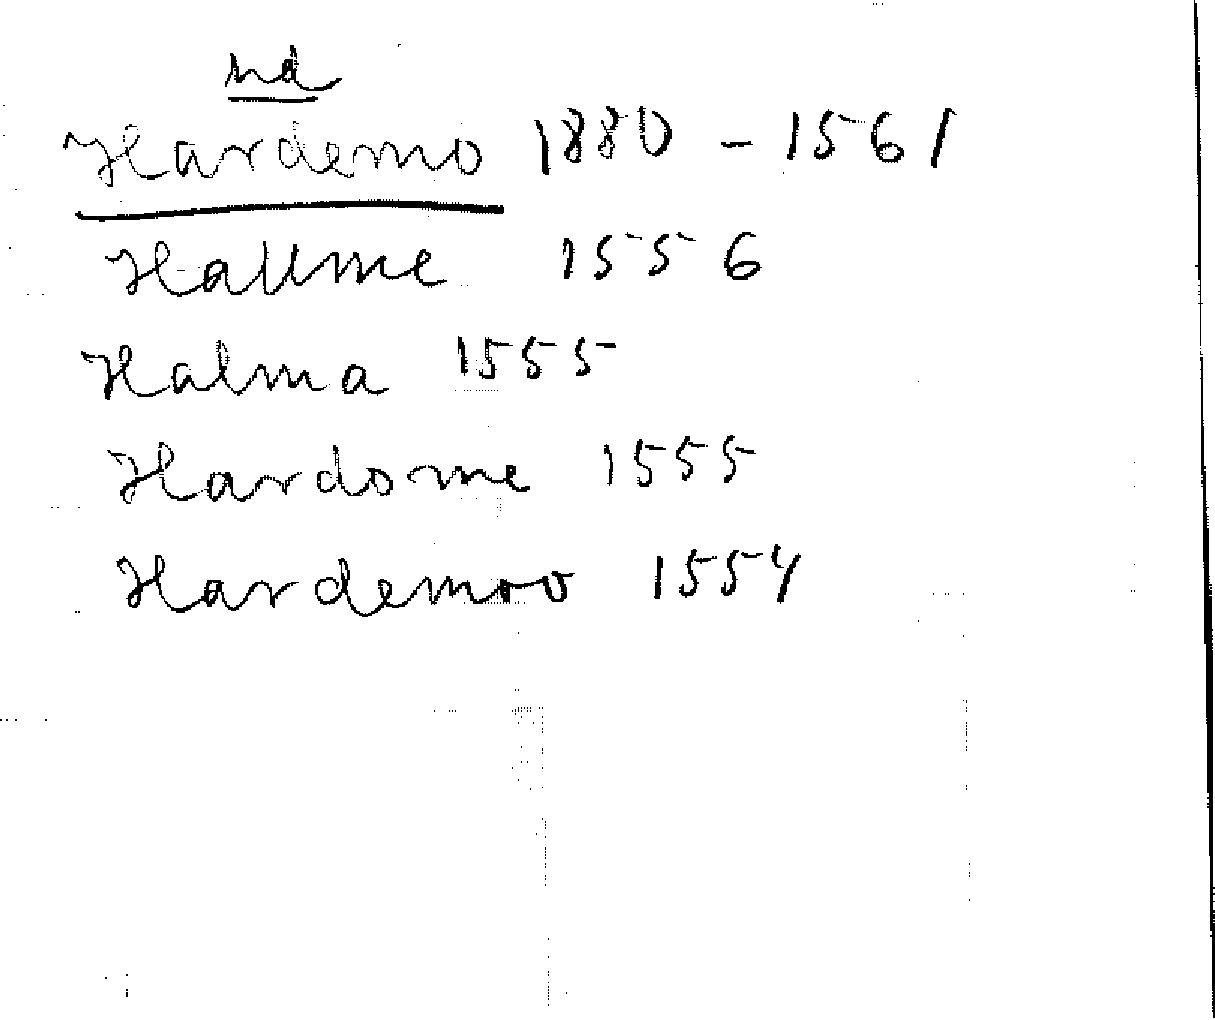 rd
Hardemo 1880 - 1561
Hallme 1556
Halma 1555
Hardome 1555
Hardemoo 1554